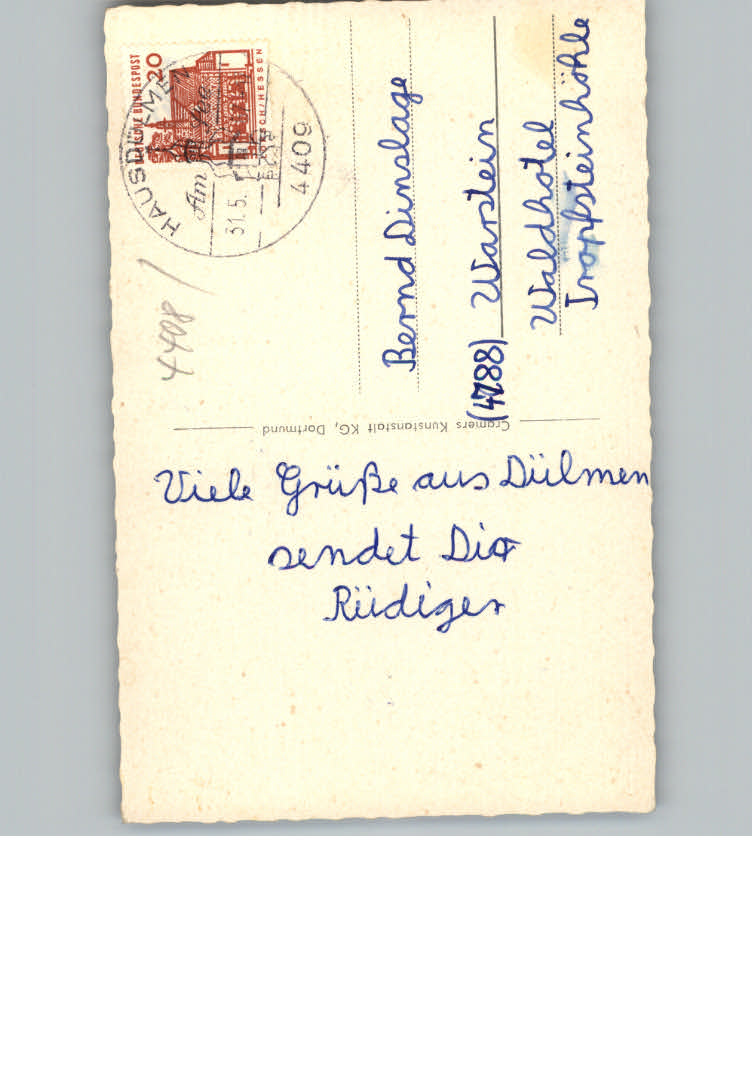 DEUTSCHE BUNDESPOST
20
HESSEN
Am
31.5.
4409
4408
Bernd Dinslage
(4788) Warstein
Waldhotel
Tropfsteinhöhle
Cramers Kunstanstalt KG, Dortmund
Viele Grüße aus Dülmen
sendet Dir
Rüdiger